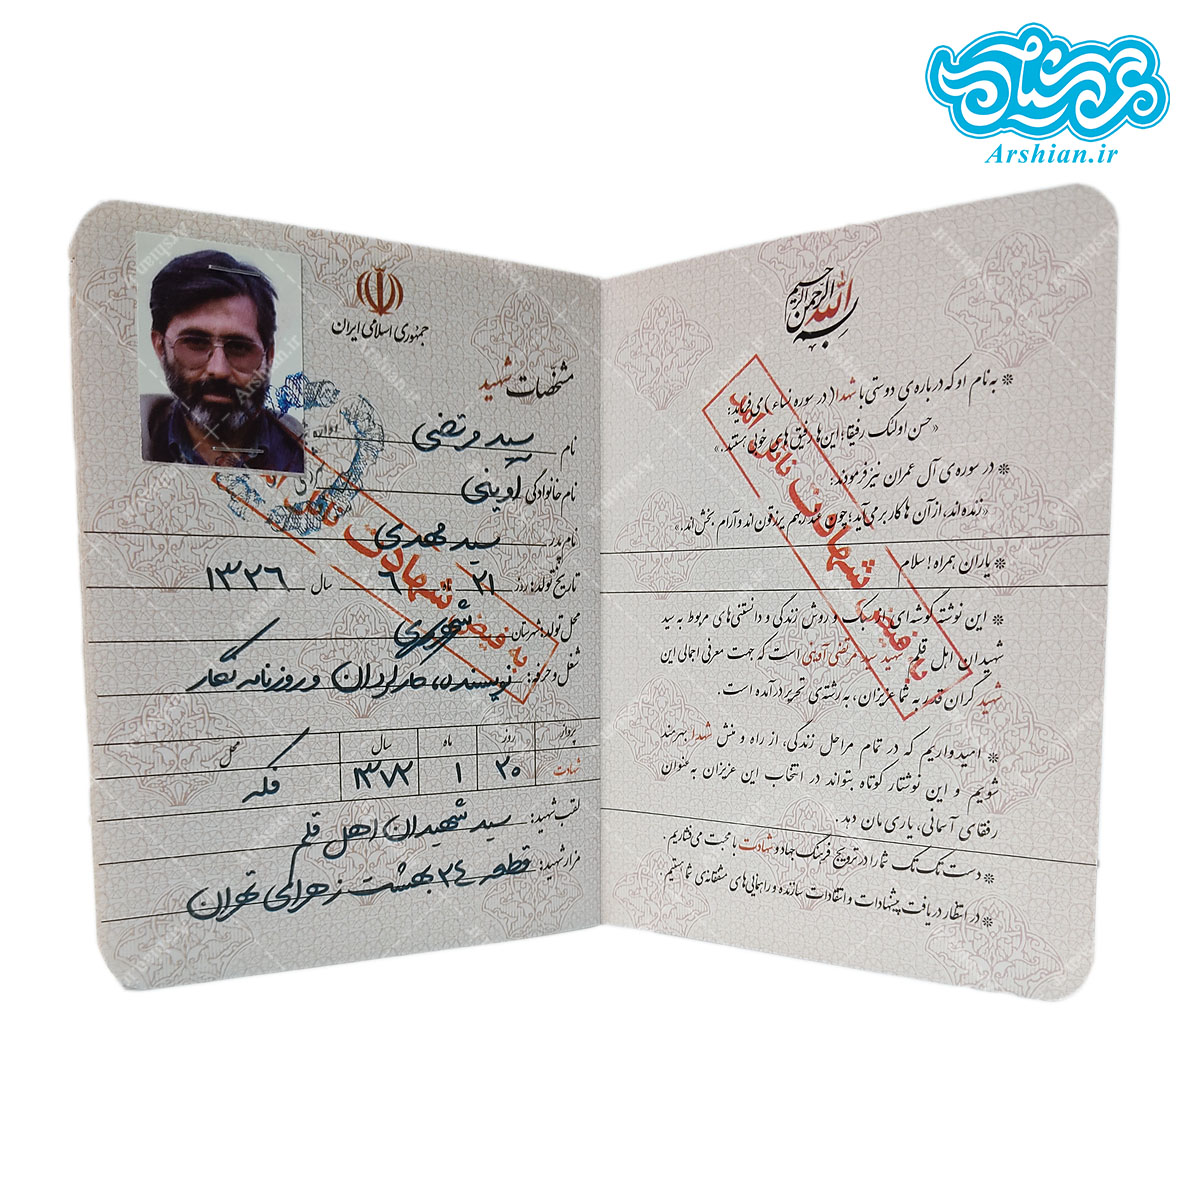 عرشیان
Arshian.ir
جمهوری اسلامی ایران
مشخصات شهید
نام سید مرتضی
نام خانوادگی آوینی
نام پدر سید مهدی
تاریخ تولد: روز ۲۱ ماه ۶ سال ۱۳۲۶
محل تولد: شهرستان شهرری
شغل و حرفه: نویسنده، کارگردان و روزنامه نگار
پرواز روز ماه سال محل
شهادت ۲۰ ۱ ۱۳۷۲ فکه
لقب شهید: سید شهیدان اهل قلم
مزار شهید: قطعه ۲۴ بهشت زهرای تهران
به فیض شهادت نائل آمد
بسم الله الرحمن الرحیم
* به نام او که درباره‌ی دوستی با شهدا (در سوره نساء) می‌فرماید:
«حسن اولئک رفیقا؛ این‌ها رفیق‌های خوبی هستند.»
* در سوره‌ی آل عمران نیز فرمودند:
«زنده‌اند، از آن ها کار بر می‌آید؛ چون عند ربهم یرزقون‌اند و آرام بخش‌اند.»
* یاران همراه! سلام
* این نوشته گوشه‌ای از سبک و روش زندگی و دانستنی‌های مربوط به سید
شهیدان اهل قلم شهید سید مرتضی آوینی است که جهت معرفی اجمالی این
شهید گران قدر به شما عزیزان، به رشته‌ی تحریر درآمده است.
* امیدواریم که در تمام مراحل زندگی، از راه و منش شهدا بهرمند
شویم و این نوشتار کوتاه بتواند در انتخاب این عزیزان به‌عنوان
رفقای آسمانی، یاری مان دهد.
* دست تک تک شما را در ترویج فرهنگ جهاد و شهادت با محبت می‌فشاریم.
* در انتظار دریافت پیشنهادات و انتقادات سازنده و راهنمایی‌های مشفقانه‌ی شما هستیم.
به فیض شهادت نائل آمد